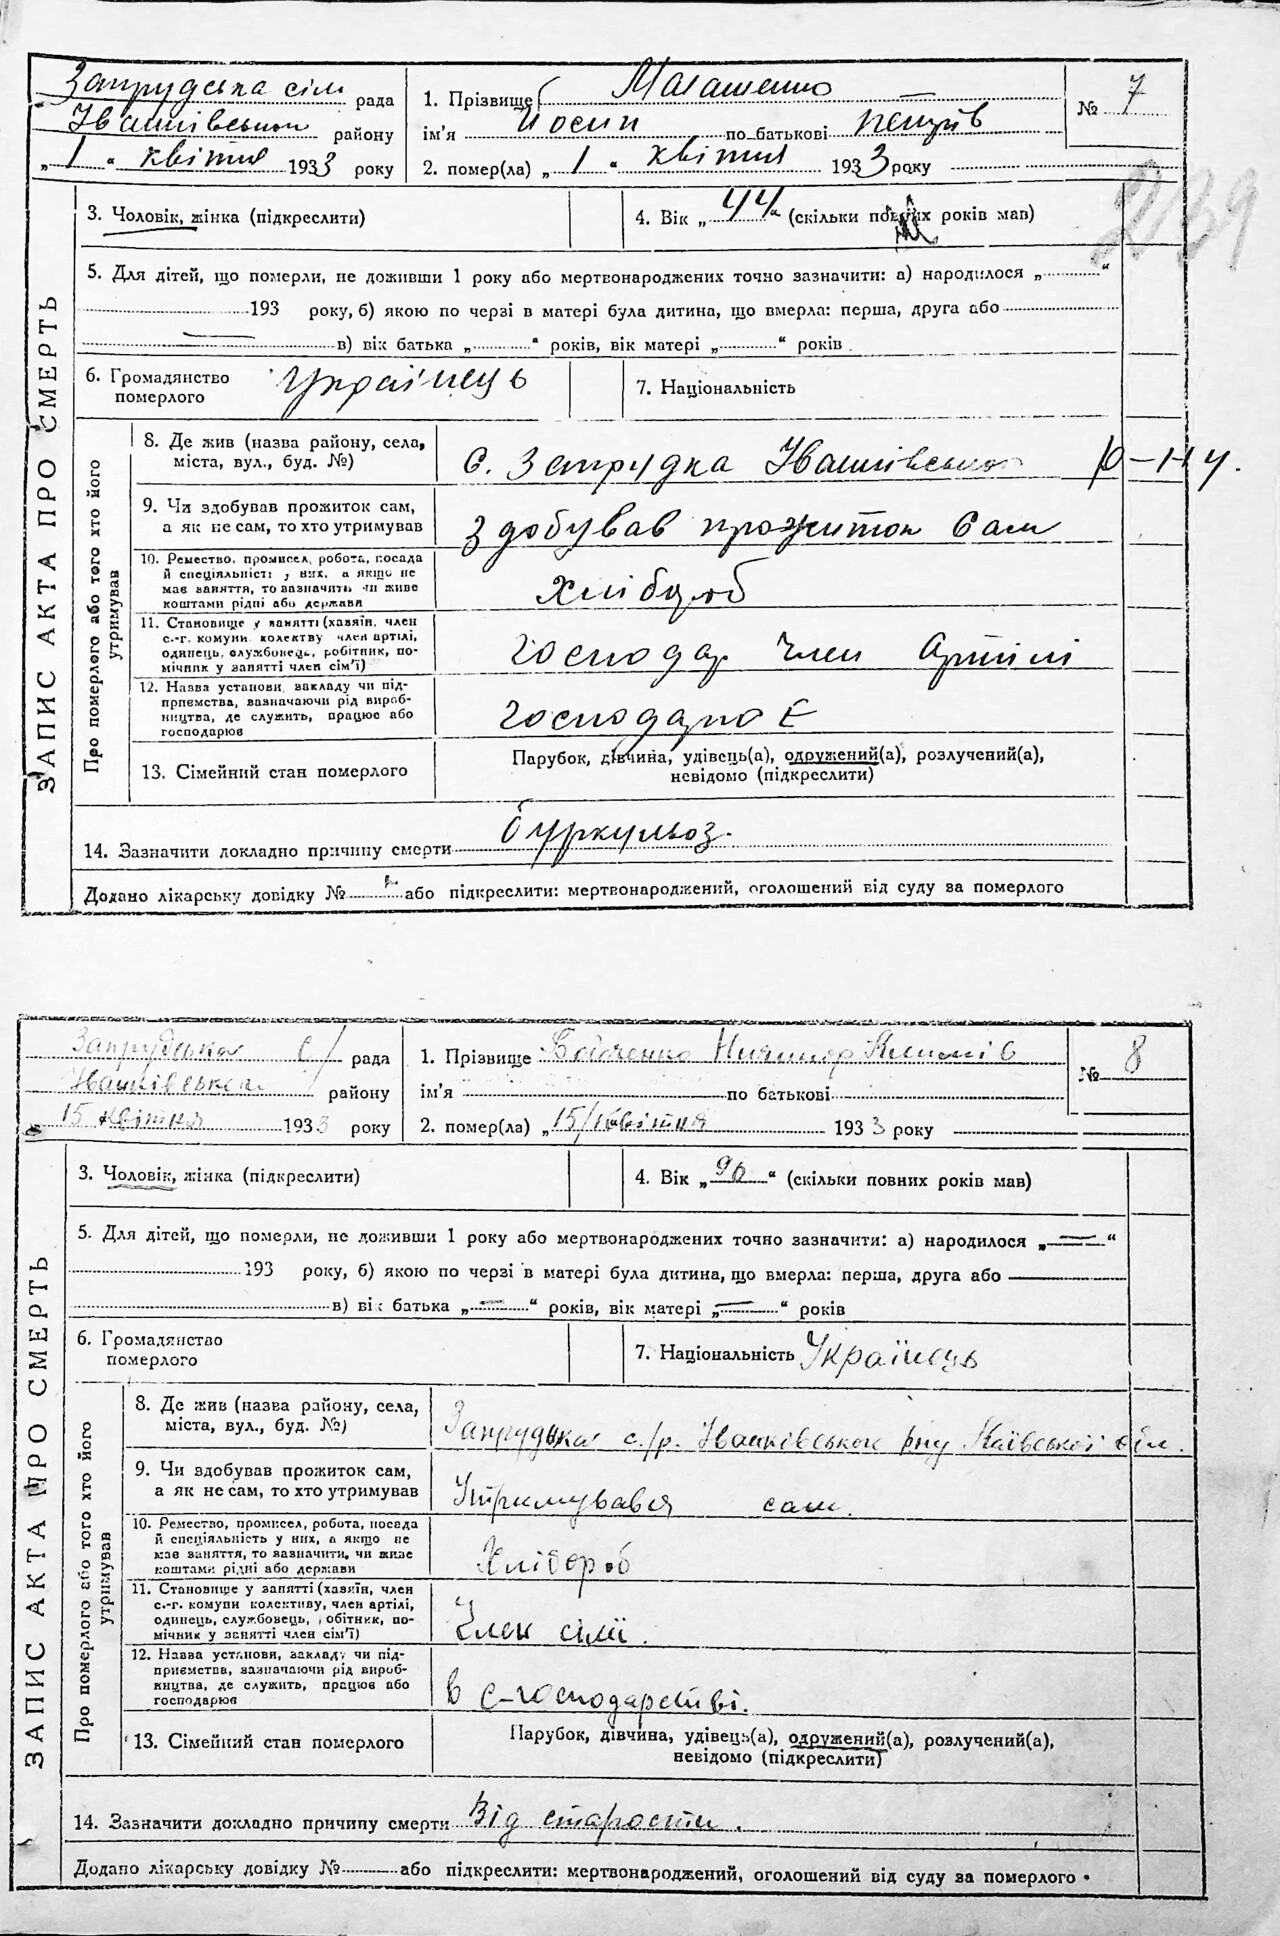 ЗАПИС АКТА ПРО СМЕРТЬ
Запрудська сіль рада
Іванківського району
„1“ квітня 1933 року
1. Прізвище
ім'я Йосип по батькові Петрів
2. помер(ла) „1“ квітня 1933 року
№ 7
2139
3. Чоловік, жінка (підкреслити)
4. Вік „44“ (скільки повних років мав)
5. Для дітей, що померли, не доживши 1 року або мертвонароджених точно зазначити: а) народилося „ “
193 року, б) якою по черзі в матері була дитина, що вмерла: перша, друга або
в) вік батька „ “ років, вік матері „ “ років.
6. Громадянство померлого Українець
7. Національність
Про померлого або того хто його утримував
8. Де жив (назва району, села,
міста, вул., буд. №)
с. Запрудка Іванківського р-ну.
9. Чи здобував прожиток сам,
а як не сам, то хто утримував
Здобував прожиток сам
10. Ремество, промисел, робота, посада
й спеціяльність у них, а якщо не
має заняття, то зазначить чи живе
коштами рідні або держави
Хлібороб
11. Становище у занятті (хазяїн, член
с.-г. комуни колектву член артілі,
одинець, службовець, робітник, по-
мічник у занятті член сім'ї)
Господар член артілі
12. Назва установи, закладу чи під-
приємства, зазначаючи рід вироб-
ництва, де служить, працює або
господарює
Господарює
13. Сімейний стан померлого
Парубок, дівчина, удівець(а), одружений(а), розлучений(а),
невідомо (підкреслити)
14. Зазначити докладно причину смерти буркульоз.
Додано лікарську довідку № або підкреслити: мертвонароджений, оголошений від суду за померлого
ЗАПИС АКТА ПРО СМЕРТЬ
Запрудська с/ рада
Іванківська району
15 квітня 1933 року
1. Прізвище Бойченко Ничипор Якимів
ім'я по батькові
2. помер(ла) „15/ квітня 1933 року
№ 8
3. Чоловік, жінка (підкреслити)
4. Вік „90“ (скільки повних років мав)
5. Для дітей, що померли, не доживши 1 року або мертвонароджених точно зазначити: а) народилося „—“
193 року, б) якою по черзі в матері була дитина, що вмерла: перша, друга або
в) вік батька „—“ років, вік матері „—“ років
6. Громадянство померлого
7. Національність Українець
Про померлого або того хто його утримував
8. Де жив (назва району, села,
міста, вул., буд. №)
Запрудька с/р. Іванківського р-ну Київської обл.
9. Чи здобував прожиток сам,
а як не сам, то хто утримував
Утримувався сам.
10. Ремество, промисел, робота, посада
й спеціяльність у них, а якщо не
має заняття, то зазначити, чи живе
коштами рідні або держави
Хлібороб
11. Становище у занятті (хазяїн, член
с.-г. комуни колективу, член артілі,
одинець, службовець, робітник, по-
мічник у занятті член сім'ї)
Член сімї.
12. Назва установи, закладу чи під-
приємства, зазначаючи рід вироб-
ництва, де служить, працює або
господарює
в с-господарстві.
13. Сімейний стан померлого
Парубок, дівчина, удівець(а), одружений(а), розлучений(а),
невідомо (підкреслити)
14. Зазначити докладно причину смерти Від старости.
Додано лікарську довідку № або підкреслити: мертвонароджений, оголошений від суду за померлого